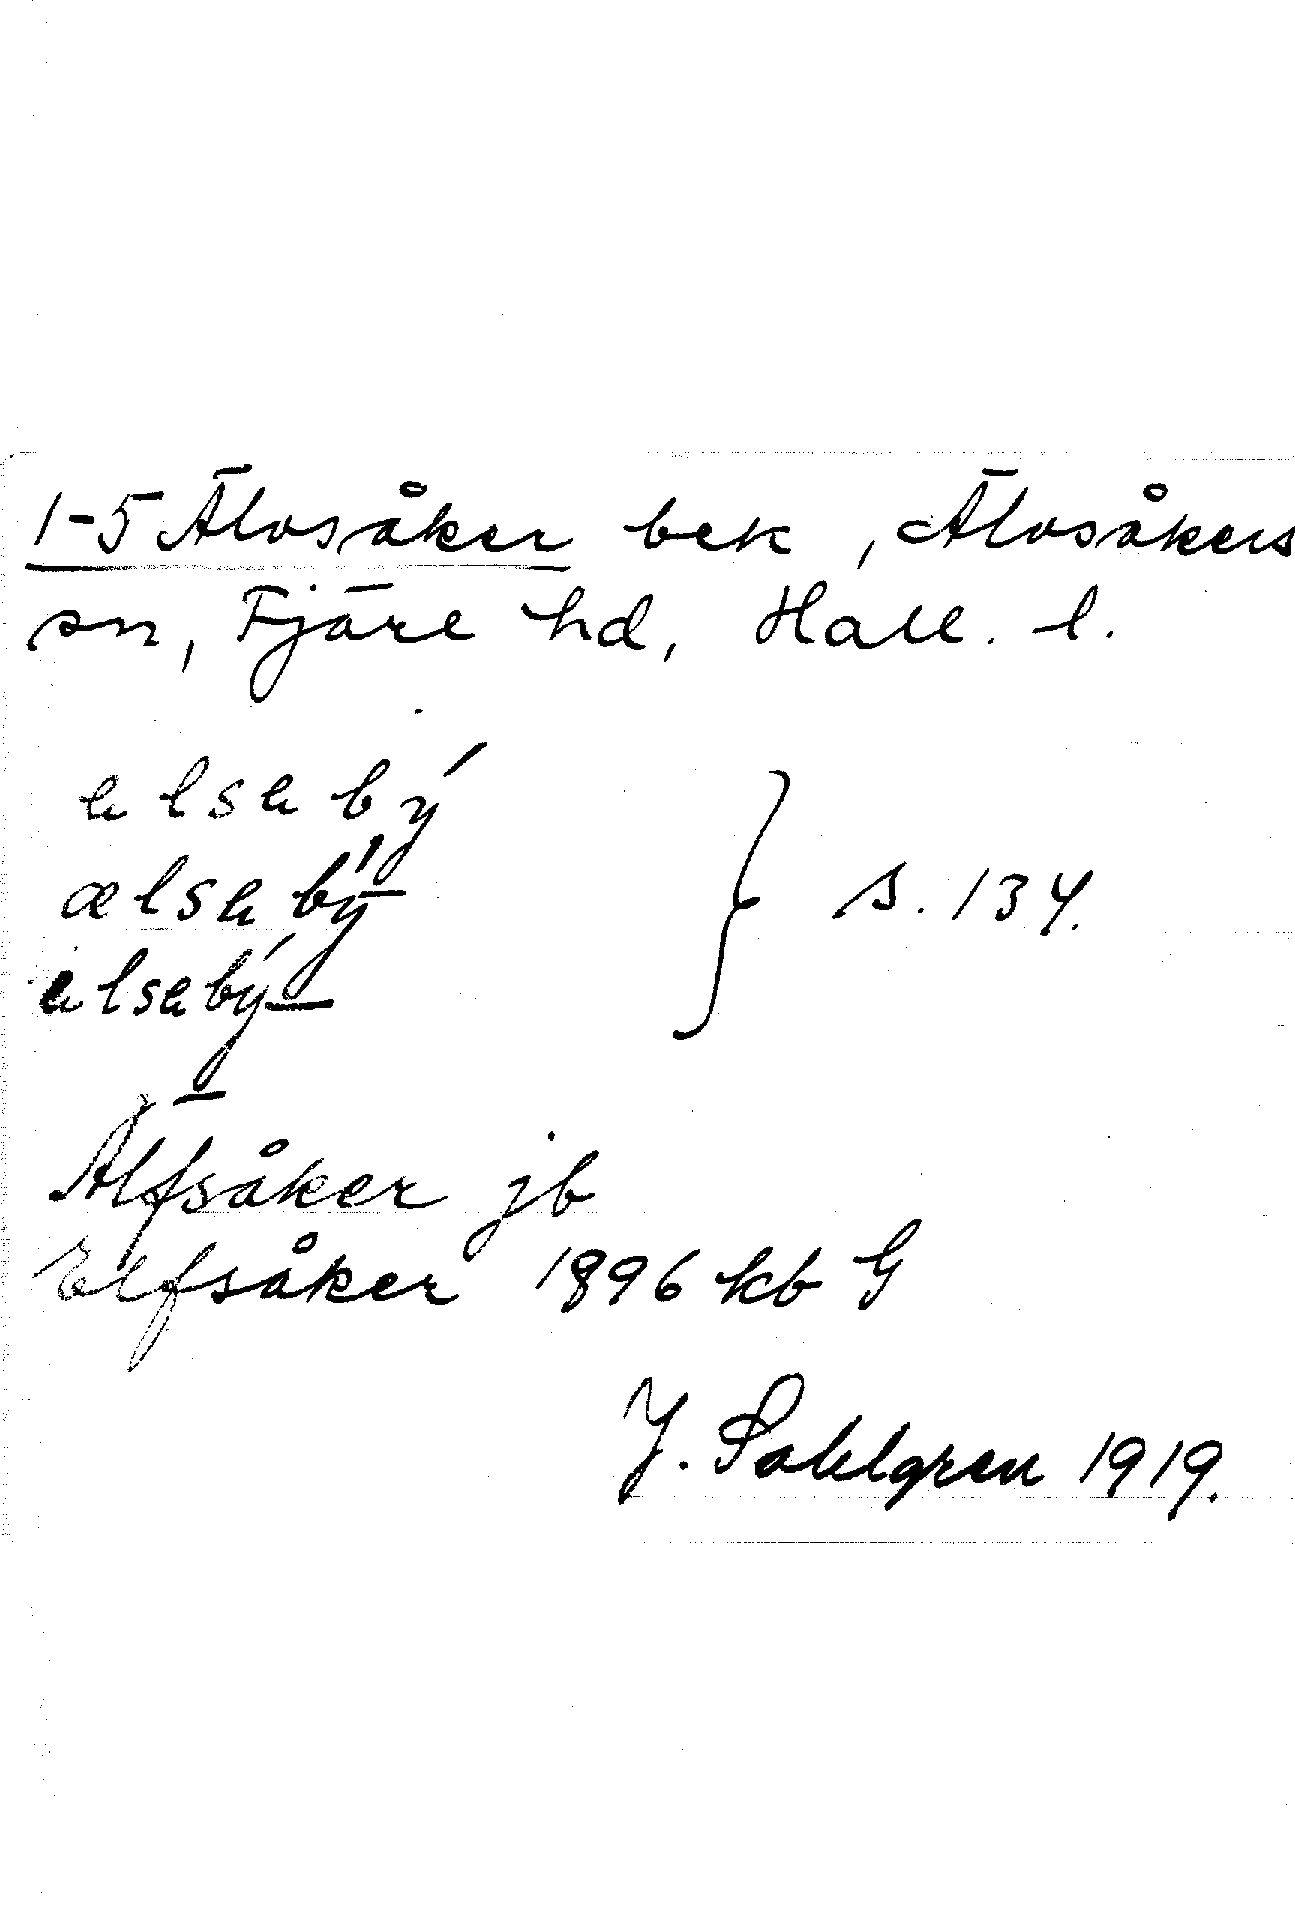 1-5 Älvsåker bek, Älvsåkers
sn, Fjäre hd, Hall. l.
elsebý
ælsebý-
elsebý-
s. 134.
Älfsåker jb
Elfsåker 1896 kb G
J. Sahlgren 1919.